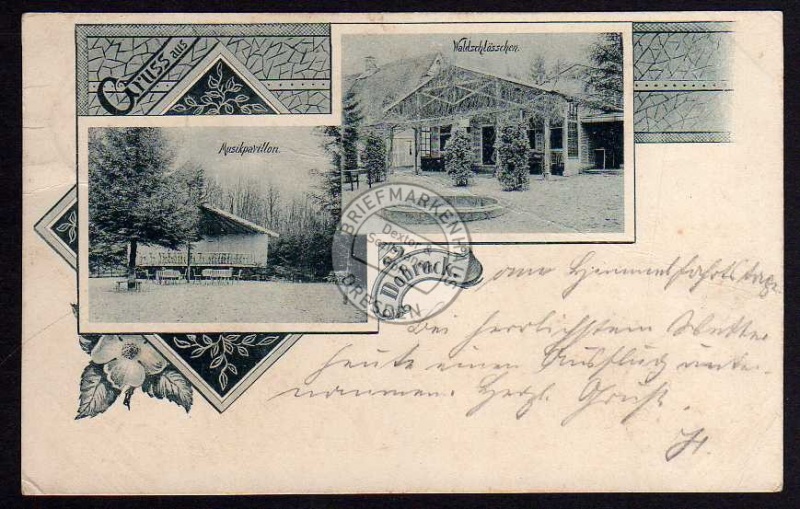 Gruss aus
Waldschlösschen.
Musikpavillon.
Dobrock.
BRIEFMARKENHAUS
Dexter &
DRESDEN
am Himmelfahrtstage
Bei herrlichstem Wetter
heute einen Ausflug unter-
nommen. Herzl. Gruß.
H.